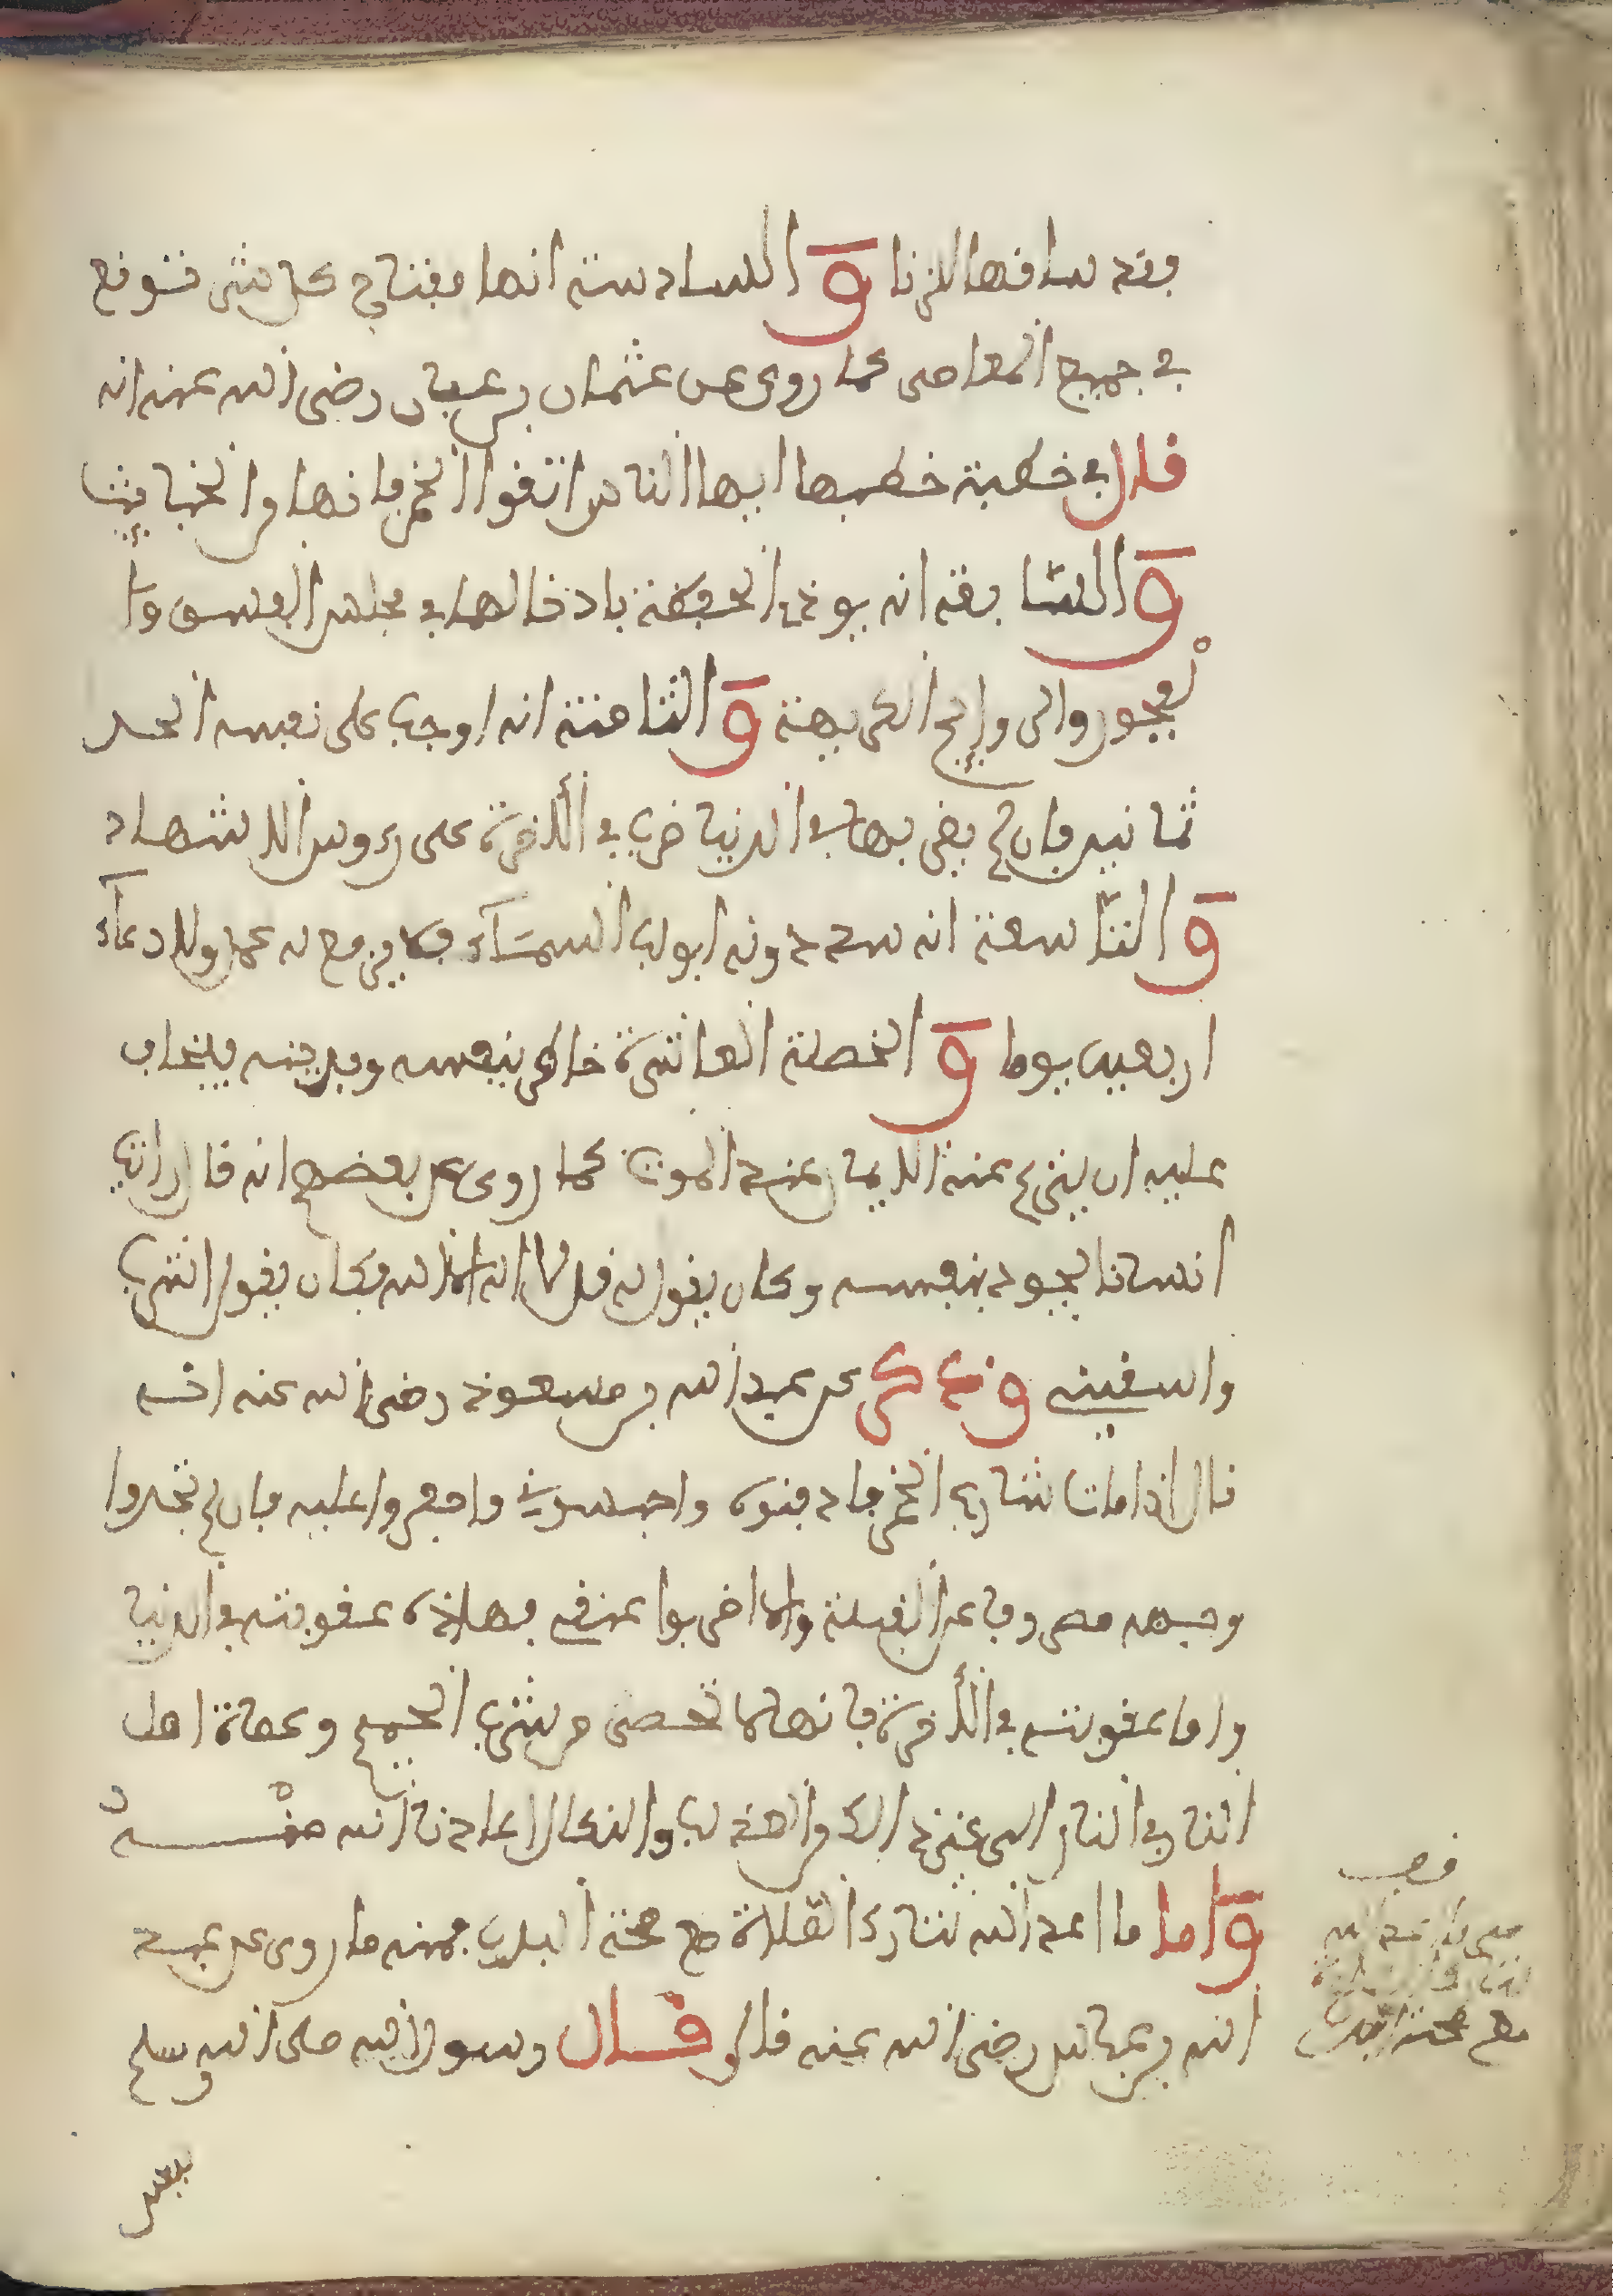 فقد ساقها للزنا والسادسة انها مفتاح كل شر فتوقع
في جميع المعاصي كما روي عن عثمان بن عفان رضي الله عنه انه
قال في خطبة خطبها ايها الناس اتقوا الخمر فانها ام الخبايث
والسابعة انه يوذي الحفظة بادخالها في مجلس الفسوق وا
لفجور والروايح الكريهة والثامنة انه اوجب على نفسه الحد
ثمانين فان لم يضرب بها في الدنيا ضرب في الأخرة على رءوس الاشهاد
والتاسعة انه سد دونه ابواب السمآء فلا يرفع له عمل ولا دعآء
اربعين يوما والخصلة العاشرة خاطر بنفسه وبدينه فيخاف
عليه ان ينزع عنه الايمان عند الموت كما روي عن بعضهم انه قال رايت
انسانا يجود بنفسه وكان يقول له قل لا اله الا الله فكان يقول اشرب
واسقيني وذكر عن عبد الله بن مسعود رضي الله عنه انه
قال اذا مات شارب الخمر فادفنوه واحبسوني واحفروا عليه فان لم تجدوا
وجهه مصروفا عن القبلة والا اضربوا عنقي فهاذه عقوبته في الدنيا
واما عقوبته في الأخرة فانها لا تحصى من شرب الحميم وعصارة اهل
النار في النار الى غير ذالك من العذاب والنكال اعاذنا الله منْه
واما ما اعد الله لتارك الصلاة مع صحة البدن فمنه ما روي عن عبد
الله بن عباس رضي الله عنه قال قال رسول الله صلى الله وسلم
قصـ
فيما اعد الله
لتارك الصلاة
مع صحة البدن